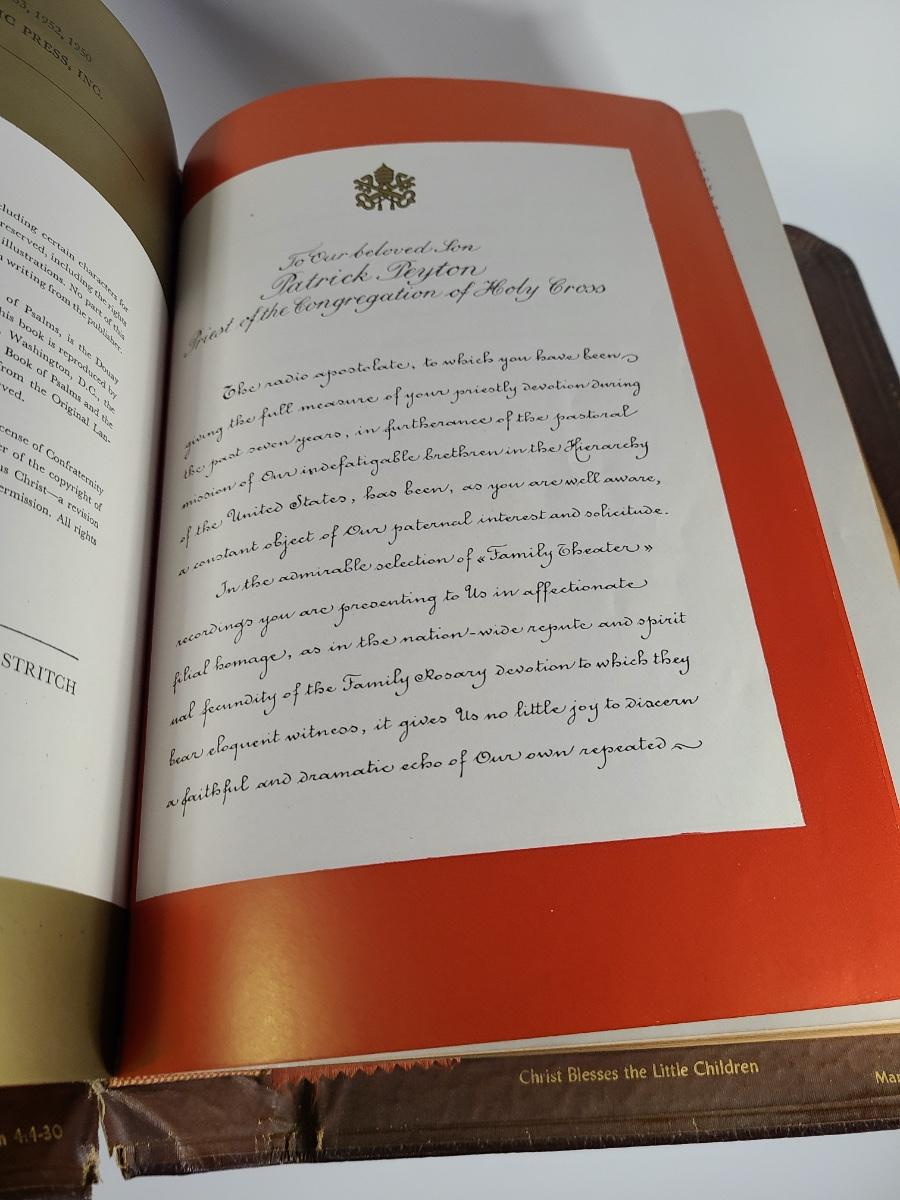 53, 1952, 1950
IC PRESS, INC.
cluding certain characters for
reserved, including the rights
illustrations. No part of this
writing from the publisher.
of Psalms, is the Douay
his book is reproduced by
Washington, D.C., the
Book of Psalms and the
from the Original Lan-
rved.
cense of Confraternity
er of the copyright of
us Christ—a revision
ermission. All rights
STRITCH
To Our beloved Son
Patrick Peyton
Priest of the Congregation of Holy Cross
The radio apostolate, to which you have been
giving the full measure of your priestly devotion during
the past seven years, in furtherance of the pastoral
mission of Our indefatigable brethren in the Hierarchy
of the United States, has been, as you are well aware,
a constant object of Our paternal interest and solicitude.
In the admirable selection of «Family Theater»
recordings you are presenting to Us in affectionate
filial homage, as in the nation-wide repute and spirit
ual fecundity of the Family Rosary devotion to which they
bear eloquent witness, it gives Us no little joy to discern
a faithful and dramatic echo of Our own repeated
Christ Blesses the Little Children
Mar
n 4:4-30